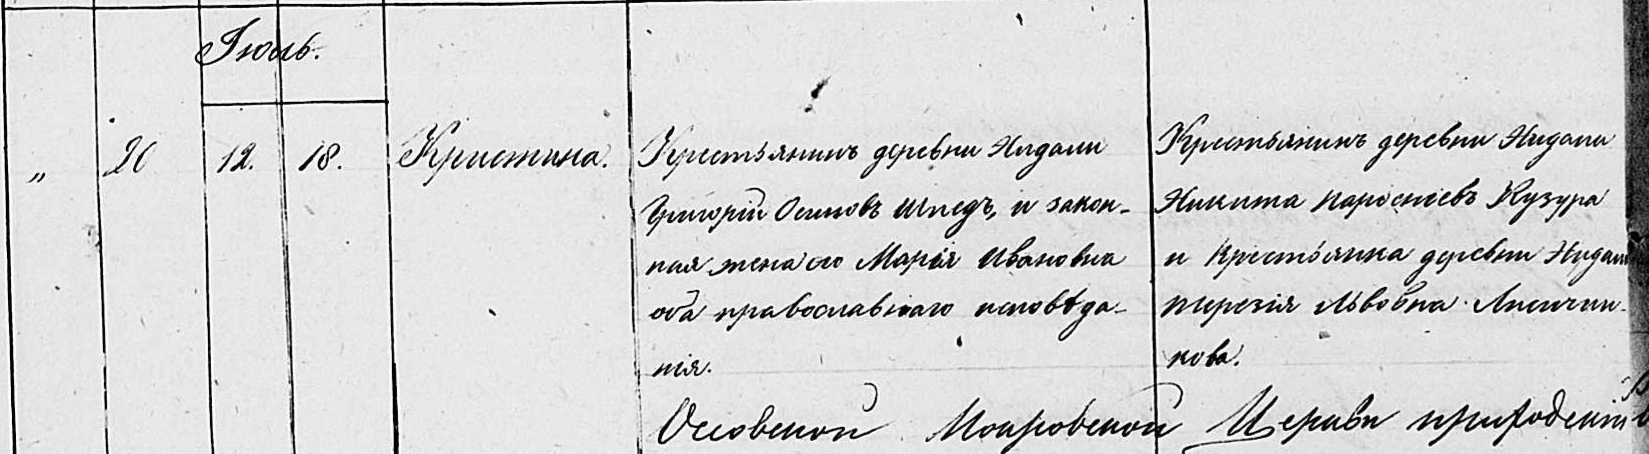 Іюль.
„ 26 12. 18. Кристина.
Крестьянинъ деревни Нидали
Григорій Осиповъ Шпедъ, и закон-
ная жена его Марія Ивановна
оба православнаго исповѣда-
нія.
Крестьянинъ деревни Нидали
Никита Иаросовъ Кузура
и Крестьянка деревни Нидали
Терезія Львовна
кова.
Оссовской Покровской Церкви приходскій